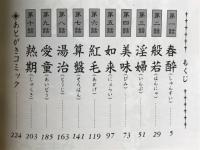 もくじ
第一話 春酔(しゅんすい) 5
第二話 般若(はんにゃ) 29
第三話 淫婦(いんぷ) 51
第四話 美味(びみ) 73
第五話 如来(にょらい) 97
第六話 紅毛(あかげ) 119
第七話 算盤(そろばん) 141
第八話 湯治(とうじ) 163
第九話 愛童 185
第十話 熱期 203
あとがきコミック 224